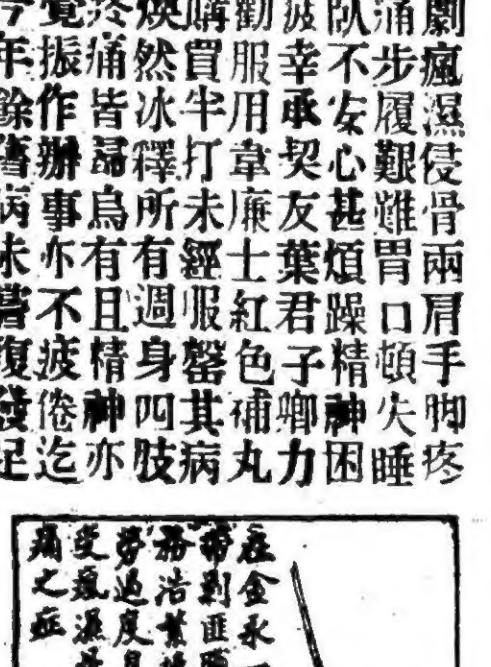 劇瘋濕侵骨兩肩手脚疼
痛步履艱難胃口頓失睡
臥不安心甚煩躁精神困
疲幸承契友葉君子卿力
勸服用韋廉士紅色補丸
購買半打未經服罄其病
煥然冰釋所有週身四肢
疼痛皆歸烏有且精神亦
覺振作辦事亦不疲倦迄
今年餘舊病未嘗復發足
在金永
帶剿匪
務浩繁
勞過度
受瘋濕
痛之症